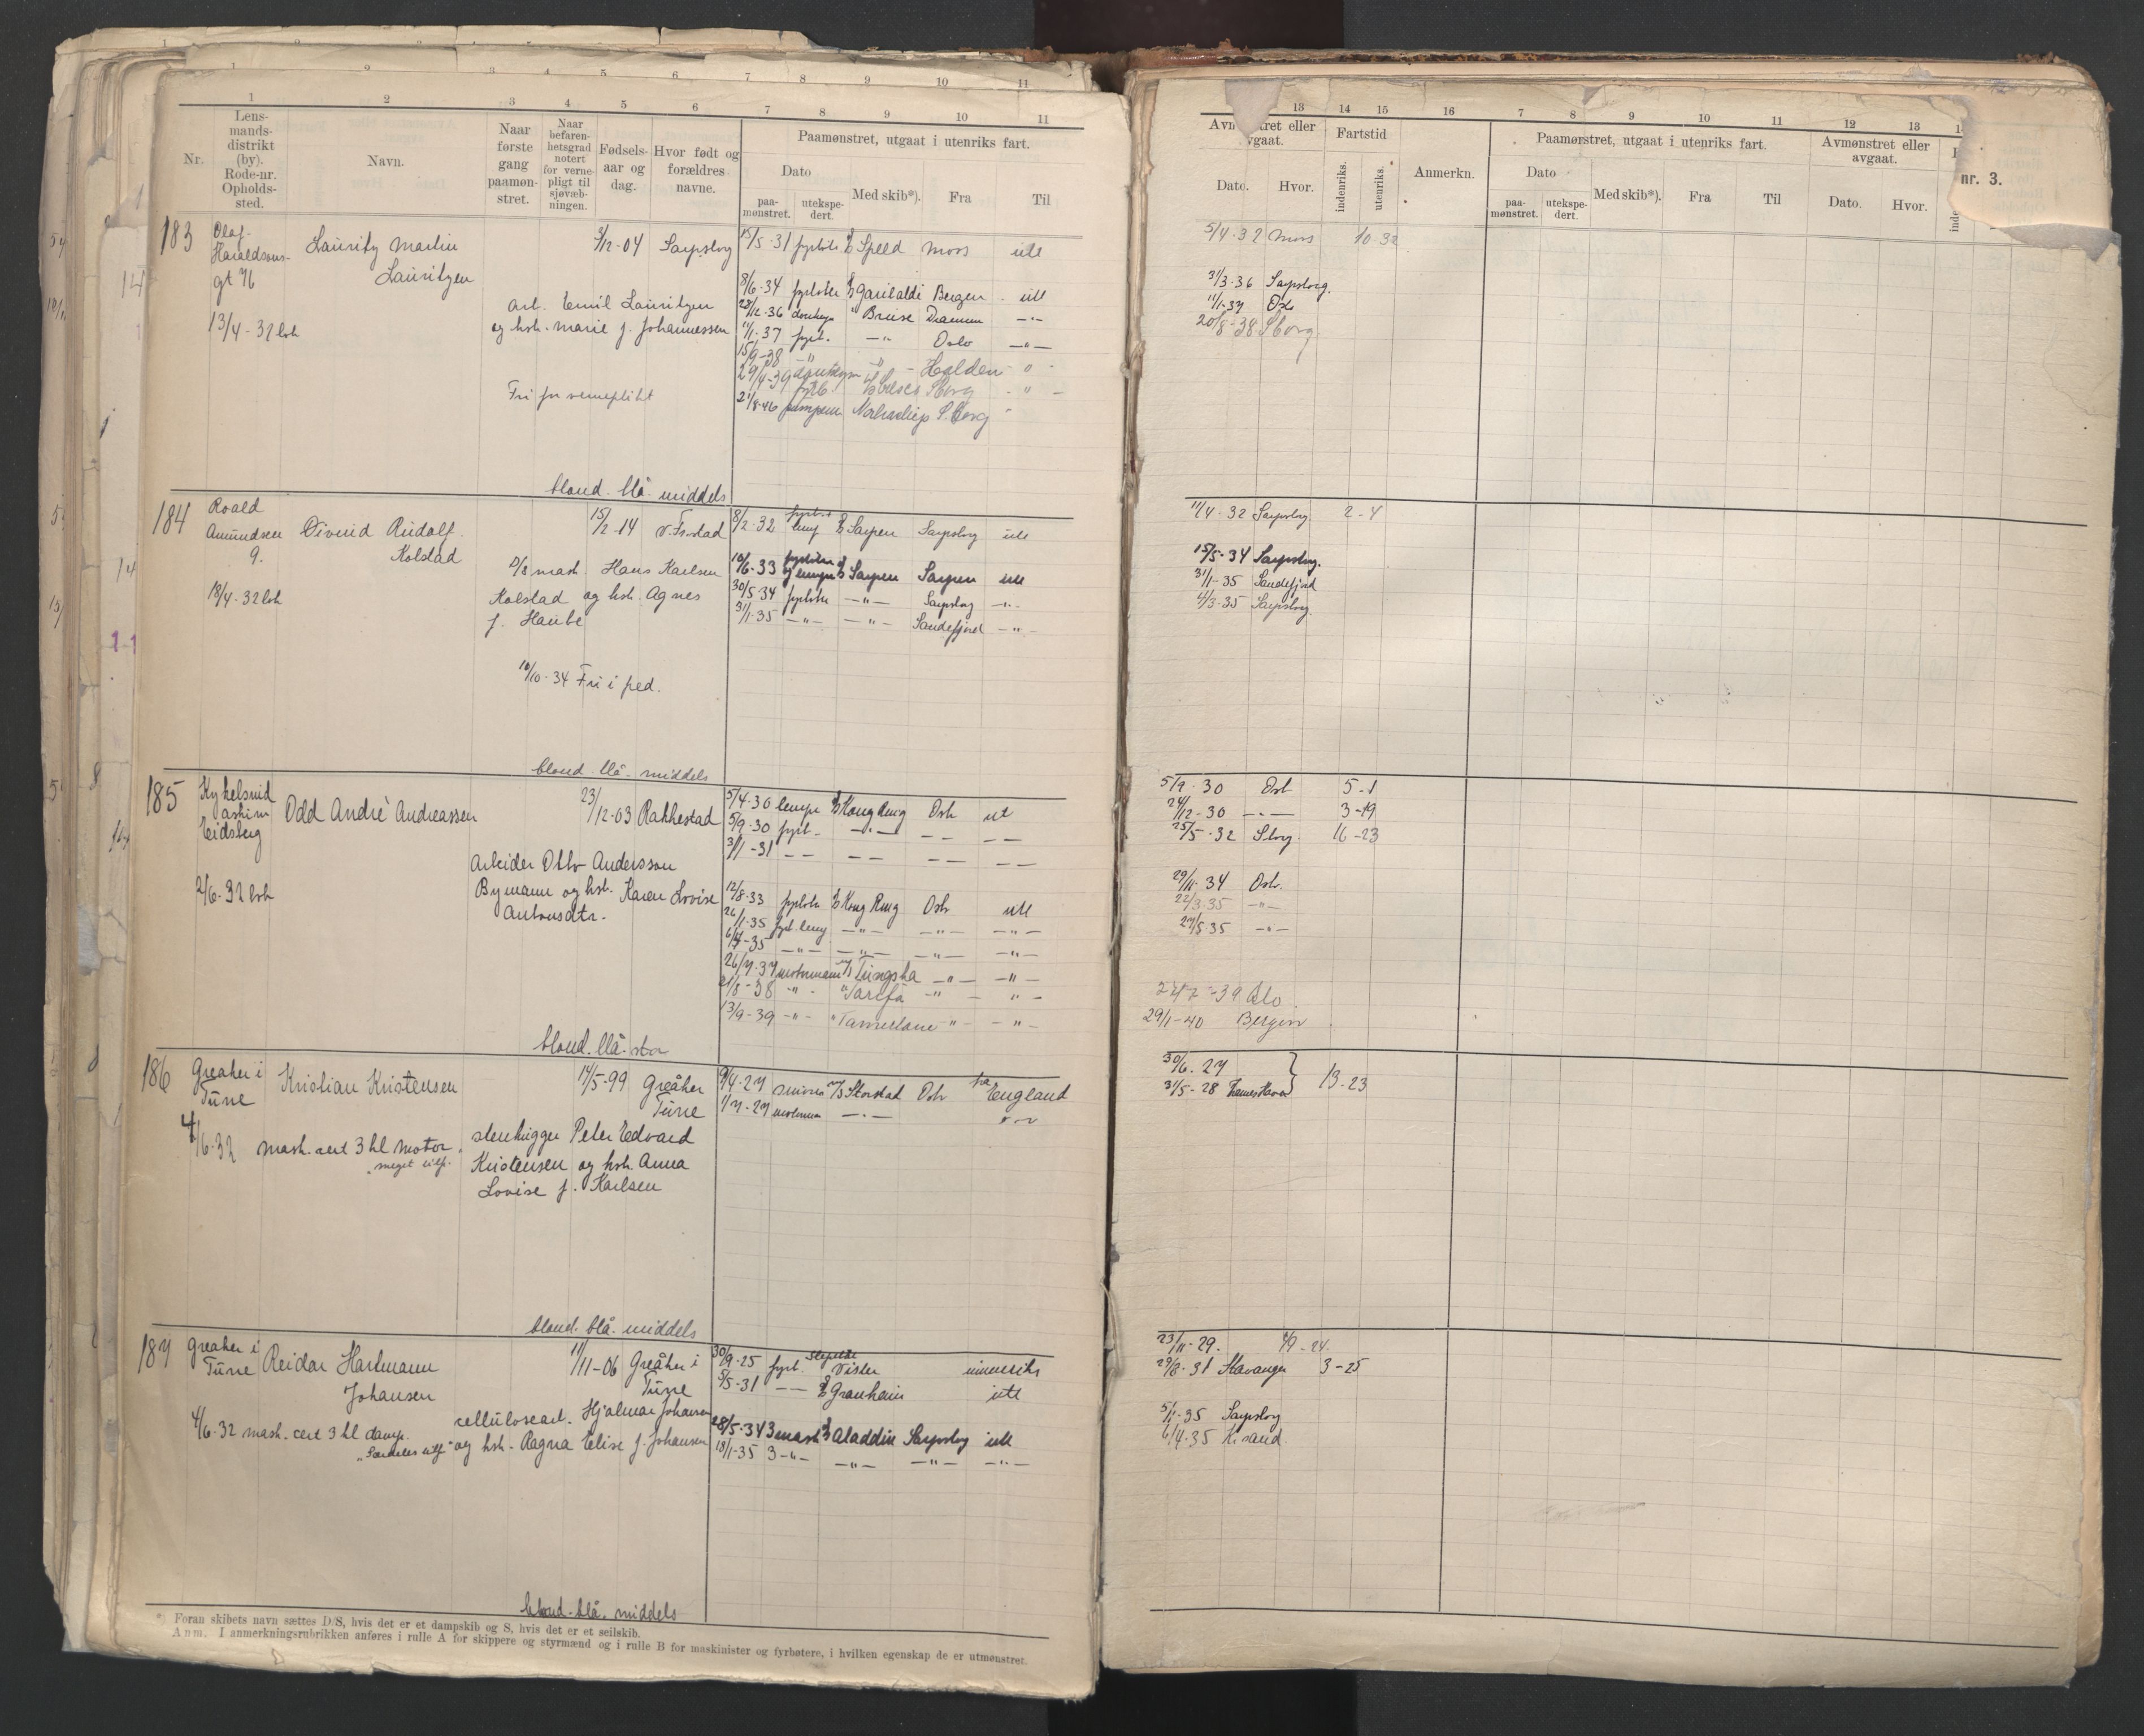 1 2 3 4 5 6 7 8 9 10 11
Nr.
Lens-
mands-
distrikt
(by).
Rode-nr.
Opholds-
sted.
Navn.
Naar
første
gang
paamøn-
stret.
Naar
befaren-
hetsgrad
notert
for verne-
pligt til
sjøvæb-
ningen.
Fødsels-
aar og
dag.
Hvor født og
forældres
navne.
Paamønstret, utgaat i utenriks fart.
Dato
paa-
mønstret.
utekspe-
dert.
Med skib*).
Fra
Til
183 Olaf-
Haraldsøns-
gt 76
13/4-32 lvk
Lauritz Martin
Lauritzen
5/12-04 Sarpsborg
Arb. Emil Lauritzen
og hst. Marie f. Johannessen
Fri for verneplikt
blond. blå. middels
15/5-31 fyrbøter D/S Speed Moss ute
8/6-34 fyrbøter D/S Garibaldi Bergen ute
28/12-36 donkeym " Bruse Drammen -"-
11/1-37 fyrb. -"- Oslo -"-
15/9-38 -"- Halden "
29/4-39 Sborg "
21/8-46 pumpem. S.borg
184 Roald
Amundsen
9.
18/4-32 lvk
Øivind Rudolf
Kolstad
15/2-14 V. Fr.stad
D/S mask. Hans Karlsen
Kolstad og hst. Agnes
f. Haube
10/10-34 Fri i fred.
blond. blå. middels
8/2-32 fyrb. lemp D/S Sarpen Sarpsborg ute
10/6-33 fyrbøter og lemper D/S Sarpen Sarpen ute
30/5-34 fyrbøter -"- Sarpsborg -"-
31/1-35 -"- -"- Sandefjord -"-
185 Kykelsrud
Askim
Eidsberg
2/6-32 lvk
Odd Andrè Andreassen
23/12-03 Rakkestad
Arbeider Otto Andersson
Bymann og hst. Karen Lovise
Antonsdtr.
blond. blå. stor
5/4-30 lemper D/S Kong Ring Oslo ut
5/9-30 fyrb- -"- - - - -
3/1-31 - - - - - - - -
12/8-33 fyrbøter D/S Kong Ring Oslo ute
26/1-35 fyrb. lemp -"- -"- -"-
6/4-35 -"- -"- -"- -"-
26/7-37 motormann M/S Tungsha -"- -"-
21/8-38 -"- " Tarifa -"- "-
13/9-39 -"- " Tamerlane -"- -"-
186 Greåker i
Tune
4/6-32 mask. cert 3 kl motor
"meget tilf."
Kristian Kristensen
17/5-99 Greåker
Tune
stenhugger Peter Edvard
Kristensen og hst. Anna
Lovise f. Karlsen
blond. blå. middels
9/4-27 smører M/S Storstad Oslo fra England
1/7-27 motormann -"-
187 Greåker i
Tune
4/6-32 mask. cert 3 kl damp.
"Særdeles tilf"
Reidar Hartmann
Johansen
11/11-06 Greåker i
Tune
cellulosearb. Hjalmar Johansen
og hst. Ragna Elise f. Johansen
blond. blå. middels
30/9-25 fyrb. Vister innenriks
5/5-31 - - D/S Granheim ute
28/5-34 3 mask D/S Aladdin Sarpsborg ute
18/1-35 3 -"- -"- -"- -"-
*) Foran skibets navn sættes D/S, hvis det er et dampskib og S, hvis det er et seilskib.
Anm. I anmerkningsrubrikken anføres i rulle A for skippere og styrmænd og i rulle B for maskinister og fyrbøtere, i hvilken egenskap de er utmønstret.
13 14 15 16 7 8 9 10 11 12 13
Avmønstret eller
avgaat.
Dato. Hvor.
Fartstid
indenriks. utenriks.
Anmerkn.
Paamønstret, utgaat i utenriks fart.
Dato
paa-
mønstret.
utekspe-
dert.
Med skib*).
Fra
Til
Avmønstret eller
avgaat.
Dato. Hvor.
nr. 3.
5/4-32 Moss 10-32
31/3-36 Sarpsborg.
11/1-37 Oslo
20/8-38 Sborg
11/4-32 Sarpsborg 2-4
15/5-34 Sarpsborg.
31/1-35 Sandefjord
4/3-35 Sarpsborg.
5/9-30 Oslo 5-1
24/12-30 -"- 3-19
25/5-32 Sborg. 16-23
29/11-34 Oslo.
22/3-35 -"-
27/5-35 -"-
24/7-39 Oslo.
29/1-40 Bergen
30/6-27
31/5-28 13-23
23/11-29. 49-24
29/8-31 Stavanger 3-25
5/1-35 Sarpsborg
6/4-35 Kr.sand.